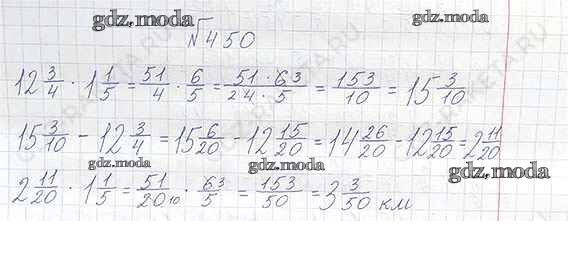 gdz.moda
gdz.moda
№450
12 3/4 · 1 1/5 = 51/4 · 6/5 = 51 · 6 3/2 4 · 5 = 153/10 = 15 3/10
15 3/10 - 12 3/4 = 15 6/20 - 12 15/20 = 14 26/20 - 12 15/20 = 2 11/20
gdz.moda gdz.moda gdz.moda
2 11/20 · 1 1/5 = 51/20 10 · 6 3/5 = 153/50 = 3 3/50 км